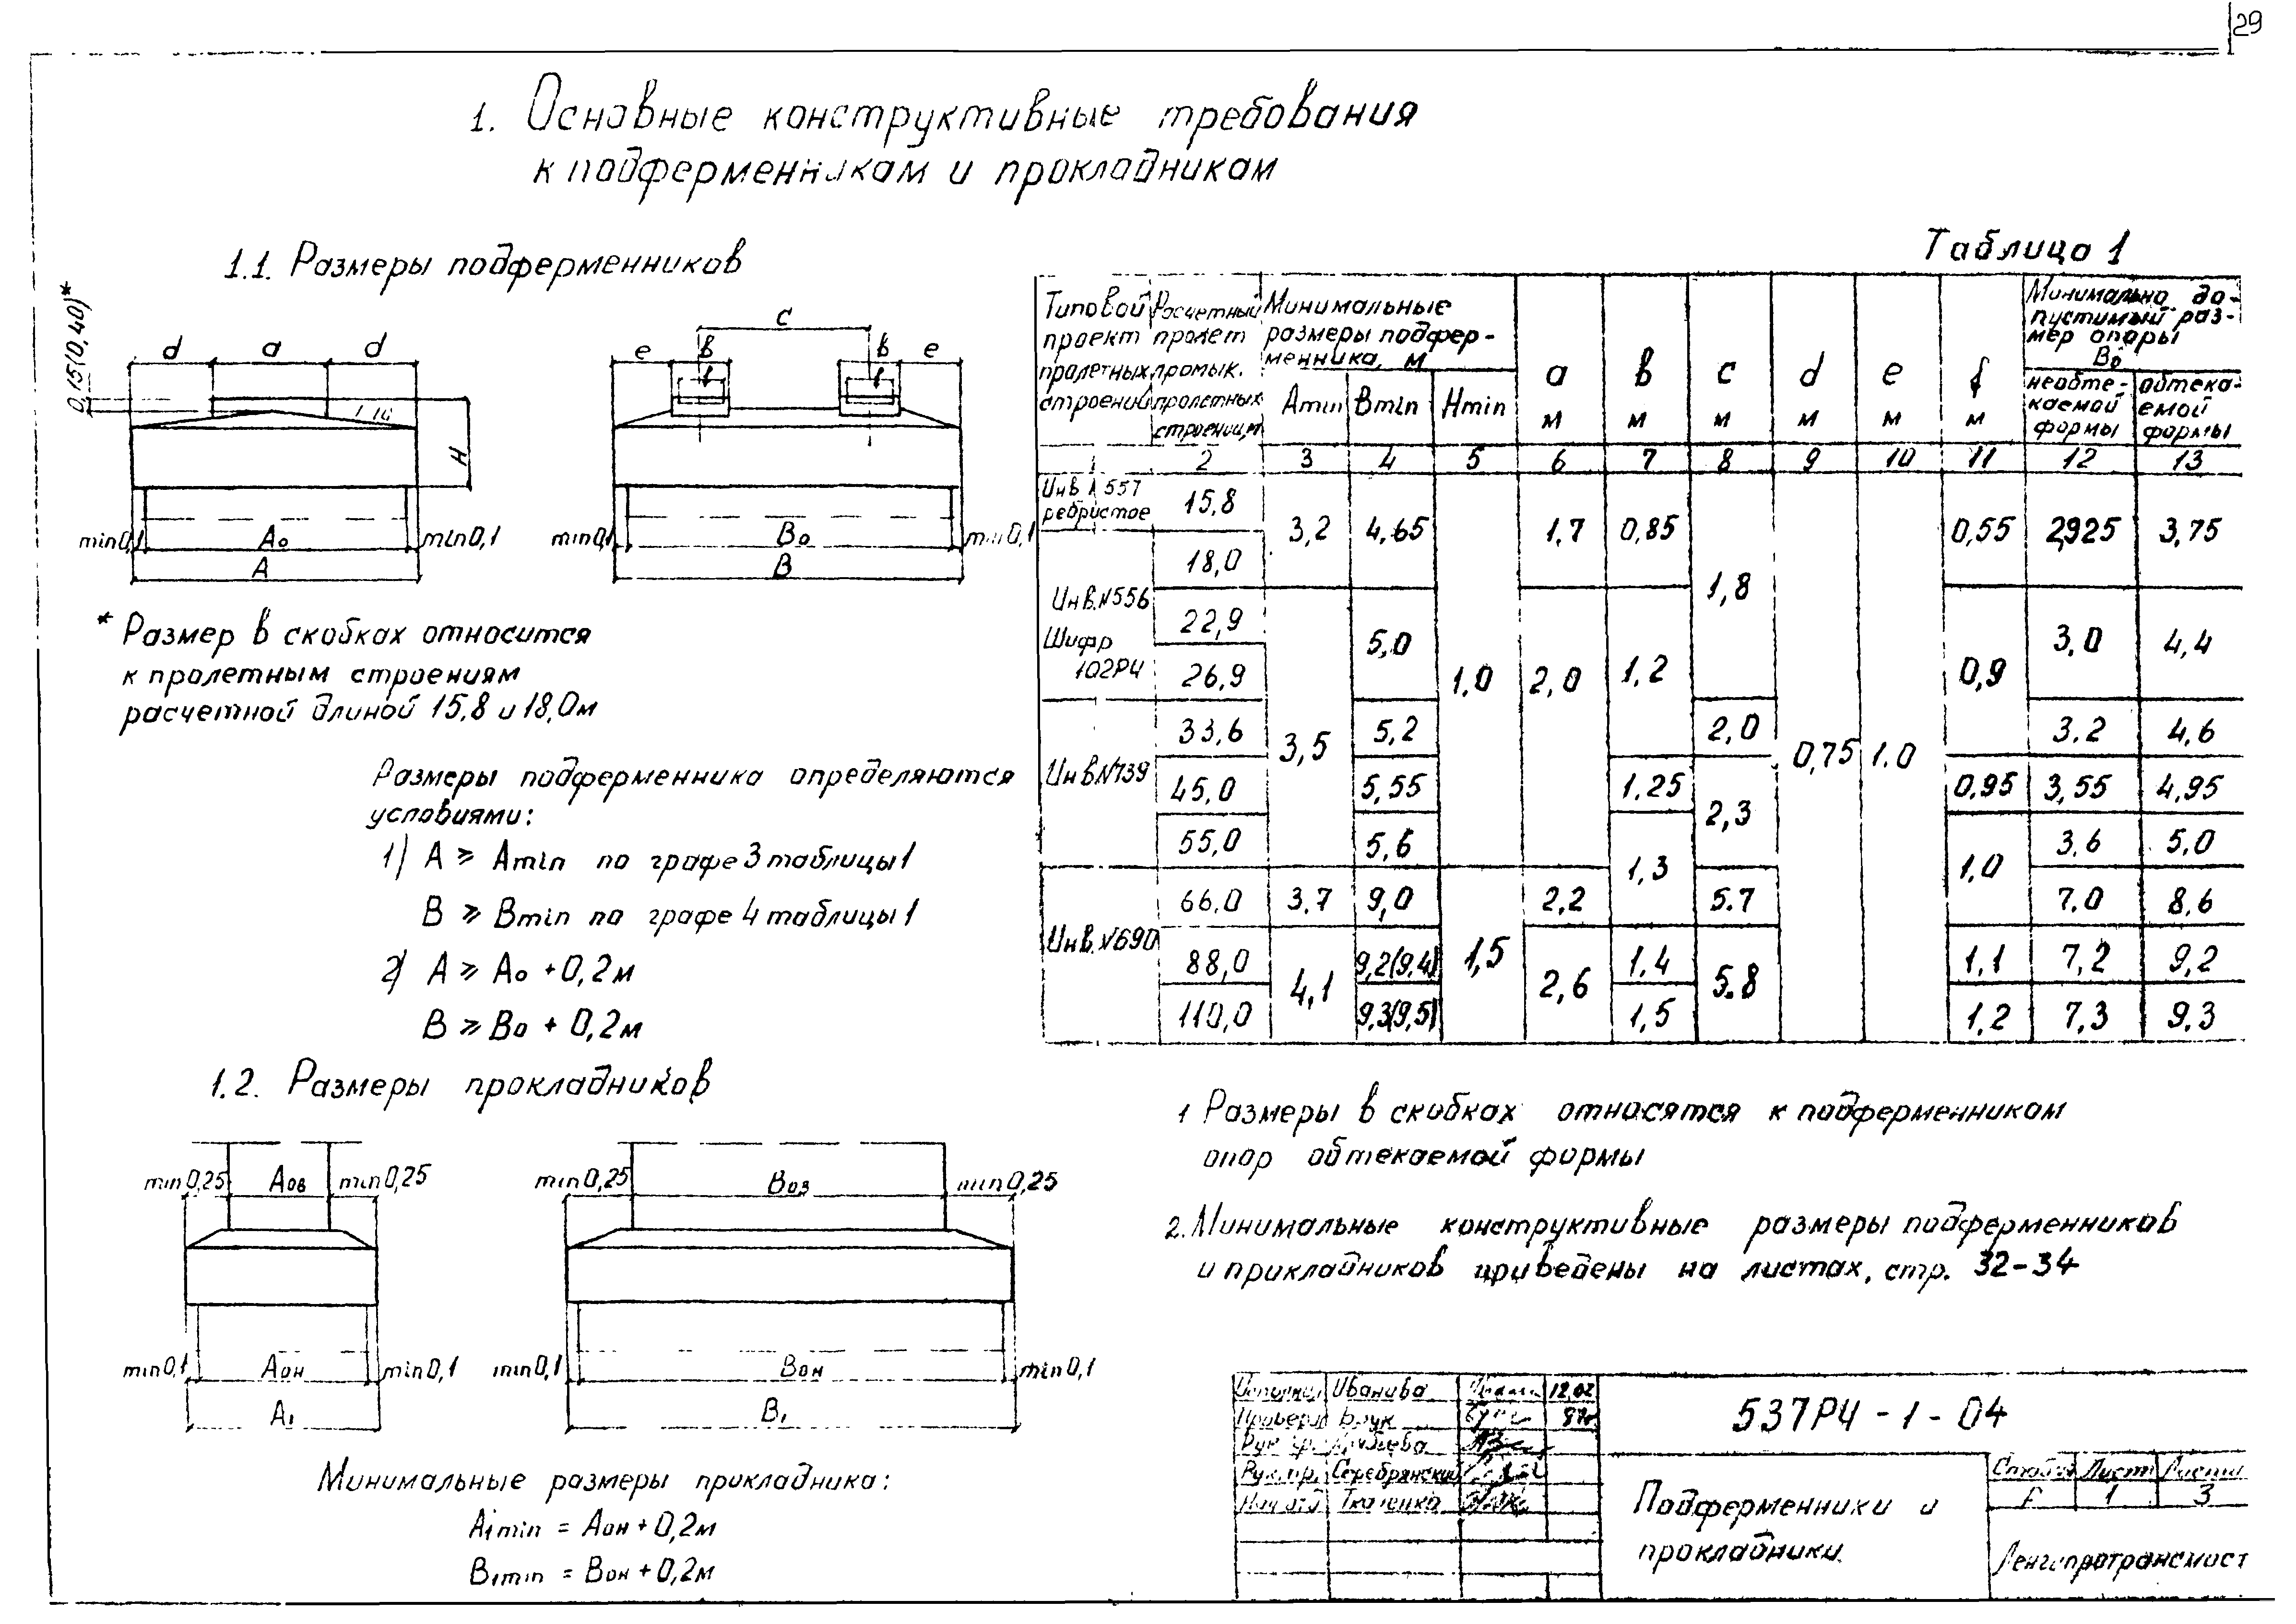 29
1. Основные конструктивные требования
к подферменникам и прокладникам
1.1. Размеры подферменников
0,15(0,40)*
d a d
1:10
H
min0,1 Ао min0,1
А
c
e в в e
min0,1 Во min0,1
В
* Размер в скобках относится
к пролетным строениям
расчетной длиной 15,8 и 18,0м
Размеры подферменника определяются
условиями:
1) А ≥ Аmin по графе 3 таблицы 1
В ≥ Вmin по графе 4 таблицы 1
2) А ≥ Ао + 0,2м
В ≥ Во + 0,2м
1.2. Размеры прокладников
min0,25 Аов min0,25
min0,1 Аон min0,1
А₁
min0,25 Воз min0,25
min0,1 Вон min0,1
В₁
Минимальные размеры прокладника:
А₁min = Аон + 0,2м
В₁min = Вон + 0,2м
Таблица 1
Типовой проект пролетных строений
Расчетный пролет промык. пролетных строений, м
Минимальные размеры подферменника, м
Amin Bmin Hmin
a м
в м
c м
d м
e м
f м
Минимально допустимый размер опоры Во
необтекаемой формы
обтекаемой формы
1 2 3 4 5 6 7 8 9 10 11 12 13
Инв № 557 ребристое
15,8 3,2 4,65 1,7 0,85 0,55 2,925 3,75
18,0
1,8
Инв.№556
22,9 5,0 3,0 4,4
Шифр
102РЧ
26,9 1,0 2,0 1,2 0,9
33,6 5,2 2,0 3.2 4,6
Инв.№739
3,5 0,75 1.0
45,0 5,55 1.25 0,95 3,55 4,95
2,3
55,0 5,6 3,6 5,0
1,3 1,0
66,0 3.7 9,0 2,2 5.7 7.0 8,6
Инв.№690
88,0 9,2(9,4) 1,5 1.4 1,1 7,2 9,2
4,1 2,6 5.8
110,0 9,3(9,5) 1,5 1.2 7,3 9.3
1 Размеры в скобках относятся к подферменникам
опор обтекаемой формы
2. Минимальные конструктивные размеры подферменников
и прикладников приведены на листах, стр. 32-34
Исполнил Иванова 12.02
Проверил Брук 87г
Рук.гр.
Рук.пр. Серебрянский
Нач.отд. Ткаченко
537РЧ - 1 - 04
Подферменники и
прокладники.
Стадия Лист Листов
Р 1 3
Ленгипротрансмост